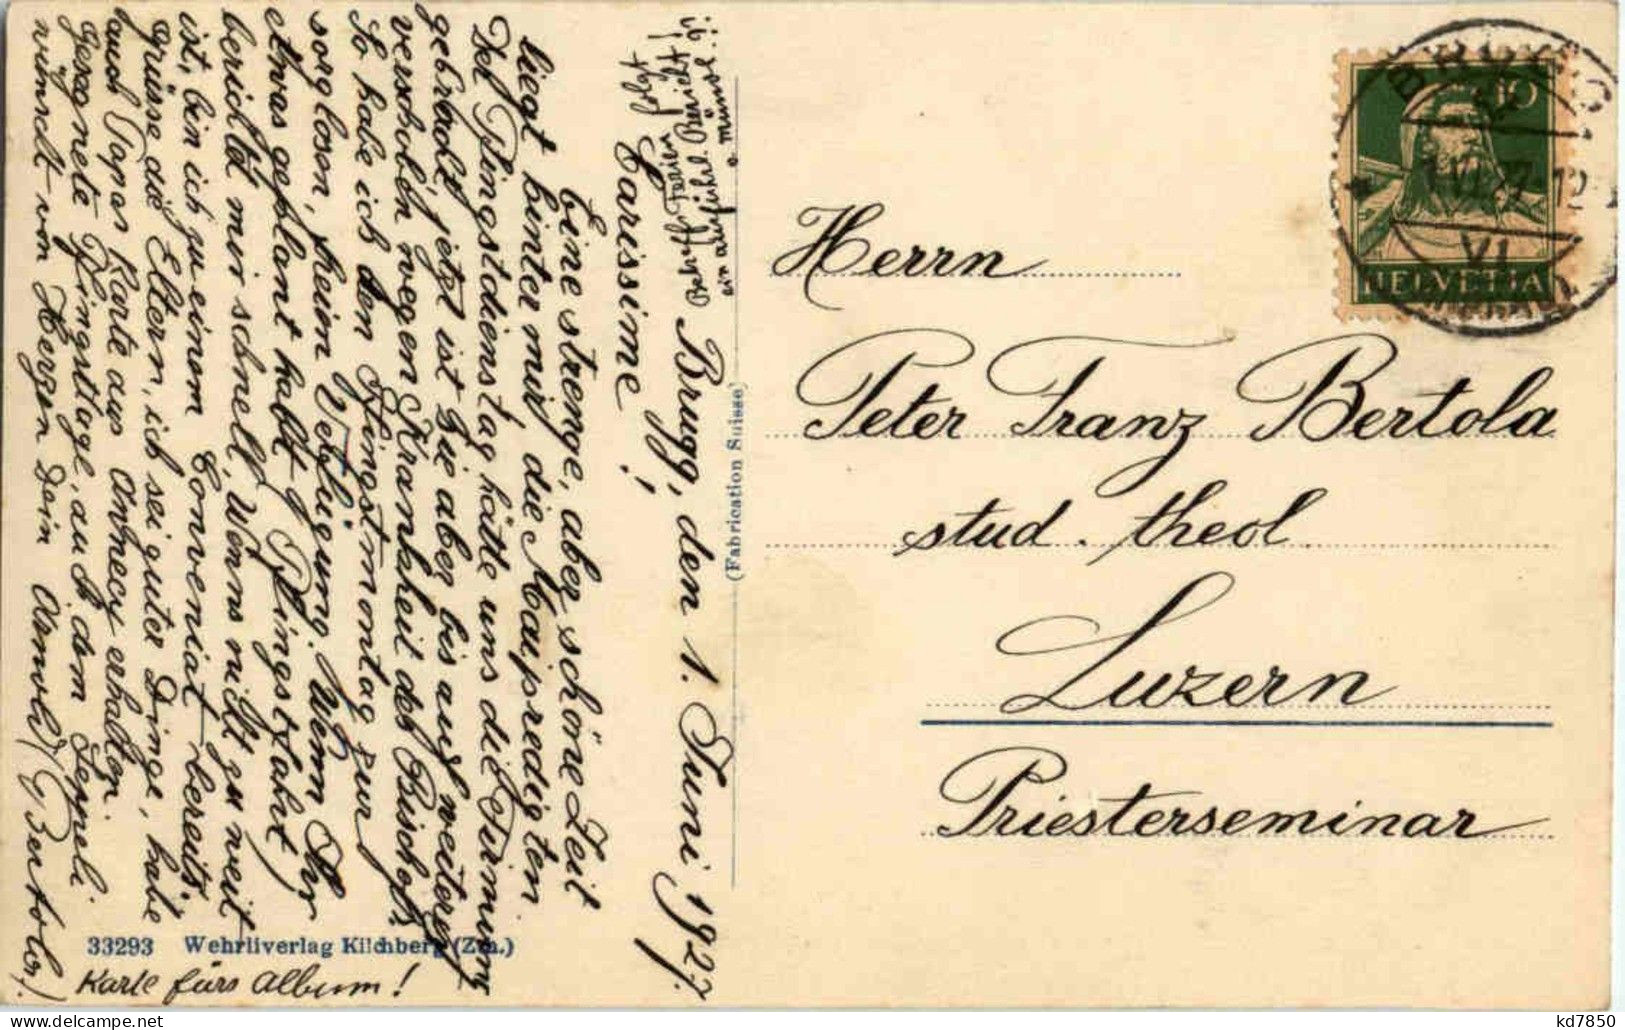 Brugg, den 1. Juni 1927.
Carissime!
Eine strenge, aber schöne Zeit
liegt hinter mir, die Maipredigten.
Der Pfingstdienstag hätte uns die Firmung
gebracht, jetzt ist sie aber bis auf weiteres
verschoben wegen Krankheit des Bischofs.
So habe ich den Pfingstmontag zur
sorglosen, freien Verfügung. Wenn Ihr
etwas geplant habt (z. Pfingstfahrt)
berichtet mir schnell, wenns nicht zu weit
ist, bin ich zu einem Conveniat bereit.
Grüsse die Eltern, ich sei guter Dinge, habe
auch Papas Karte aus Annecy erhalten.
Gesegnete Pfingsttage, auch dem Seppeli
wünscht von Herzen Dein Arnold (Bertola.)
Betreff Ferien folgt
ein ausführl. Bericht!
o. mündl.?!
Karte fürs Album!
33293 Wehrliverlag Kilchberg (Zch.)
(Fabrication Suisse)
Herrn
Peter Franz Bertola
stud. theol.
Luzern
Priesterseminar
10
HELVETIA
BRUGG
1.VI.27.12
VI
kd7850